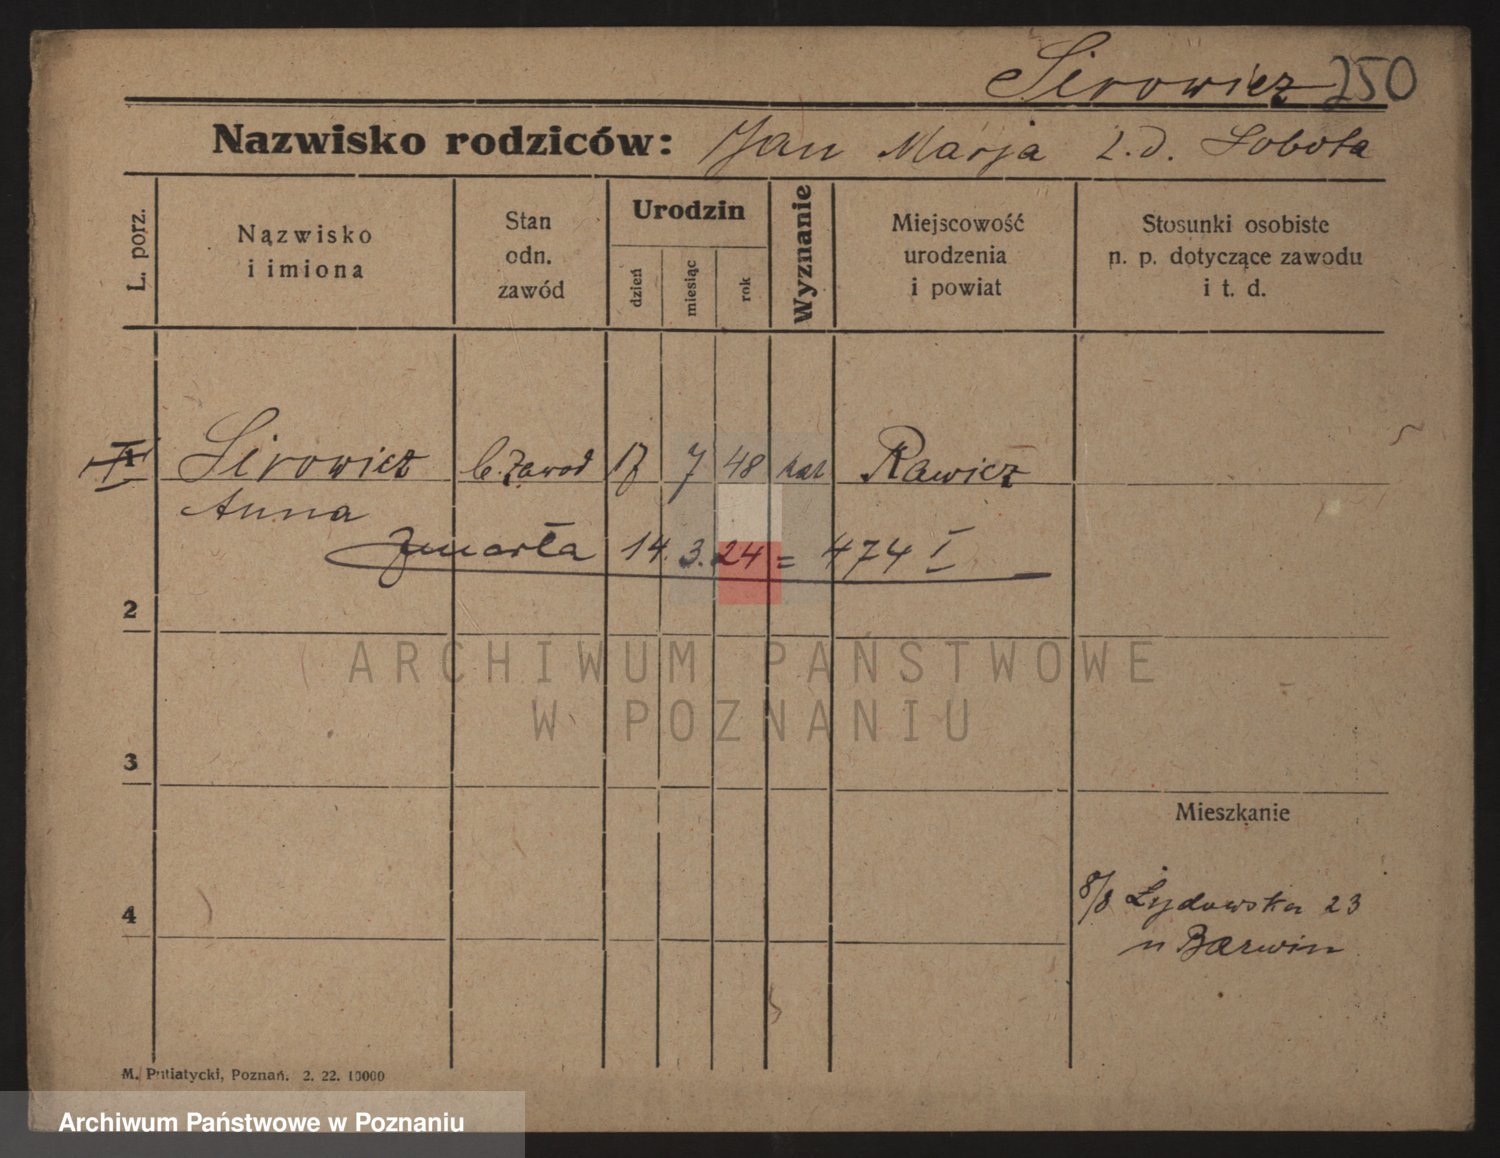 Sirowicz 250
Nazwisko rodziców: Jan Marja z.d. Sobota
L. porz.
Nązwisko
i imiona
Stan
odn.
zawód
Urodzin
dzień
miesiąc
rok
Wyznanie
Miejscowość
urodzenia
i powiat
Stosunki osobiste
n. p. dotyczące zawodu
i t. d.
1 Sirowicz b. zawod 17 7 48 kat Rawicz
Anna
Zmarła 14. 3. 24 = 474 I
2
ARCHIWUM PAŃSTWOWE
W POZNANIU
3
Mieszkanie
4
8/8 Żydowska 23
u Baerwin
M. Putiatycki, Poznań. 2. 22. 10000
Archiwum Państwowe w Poznaniu